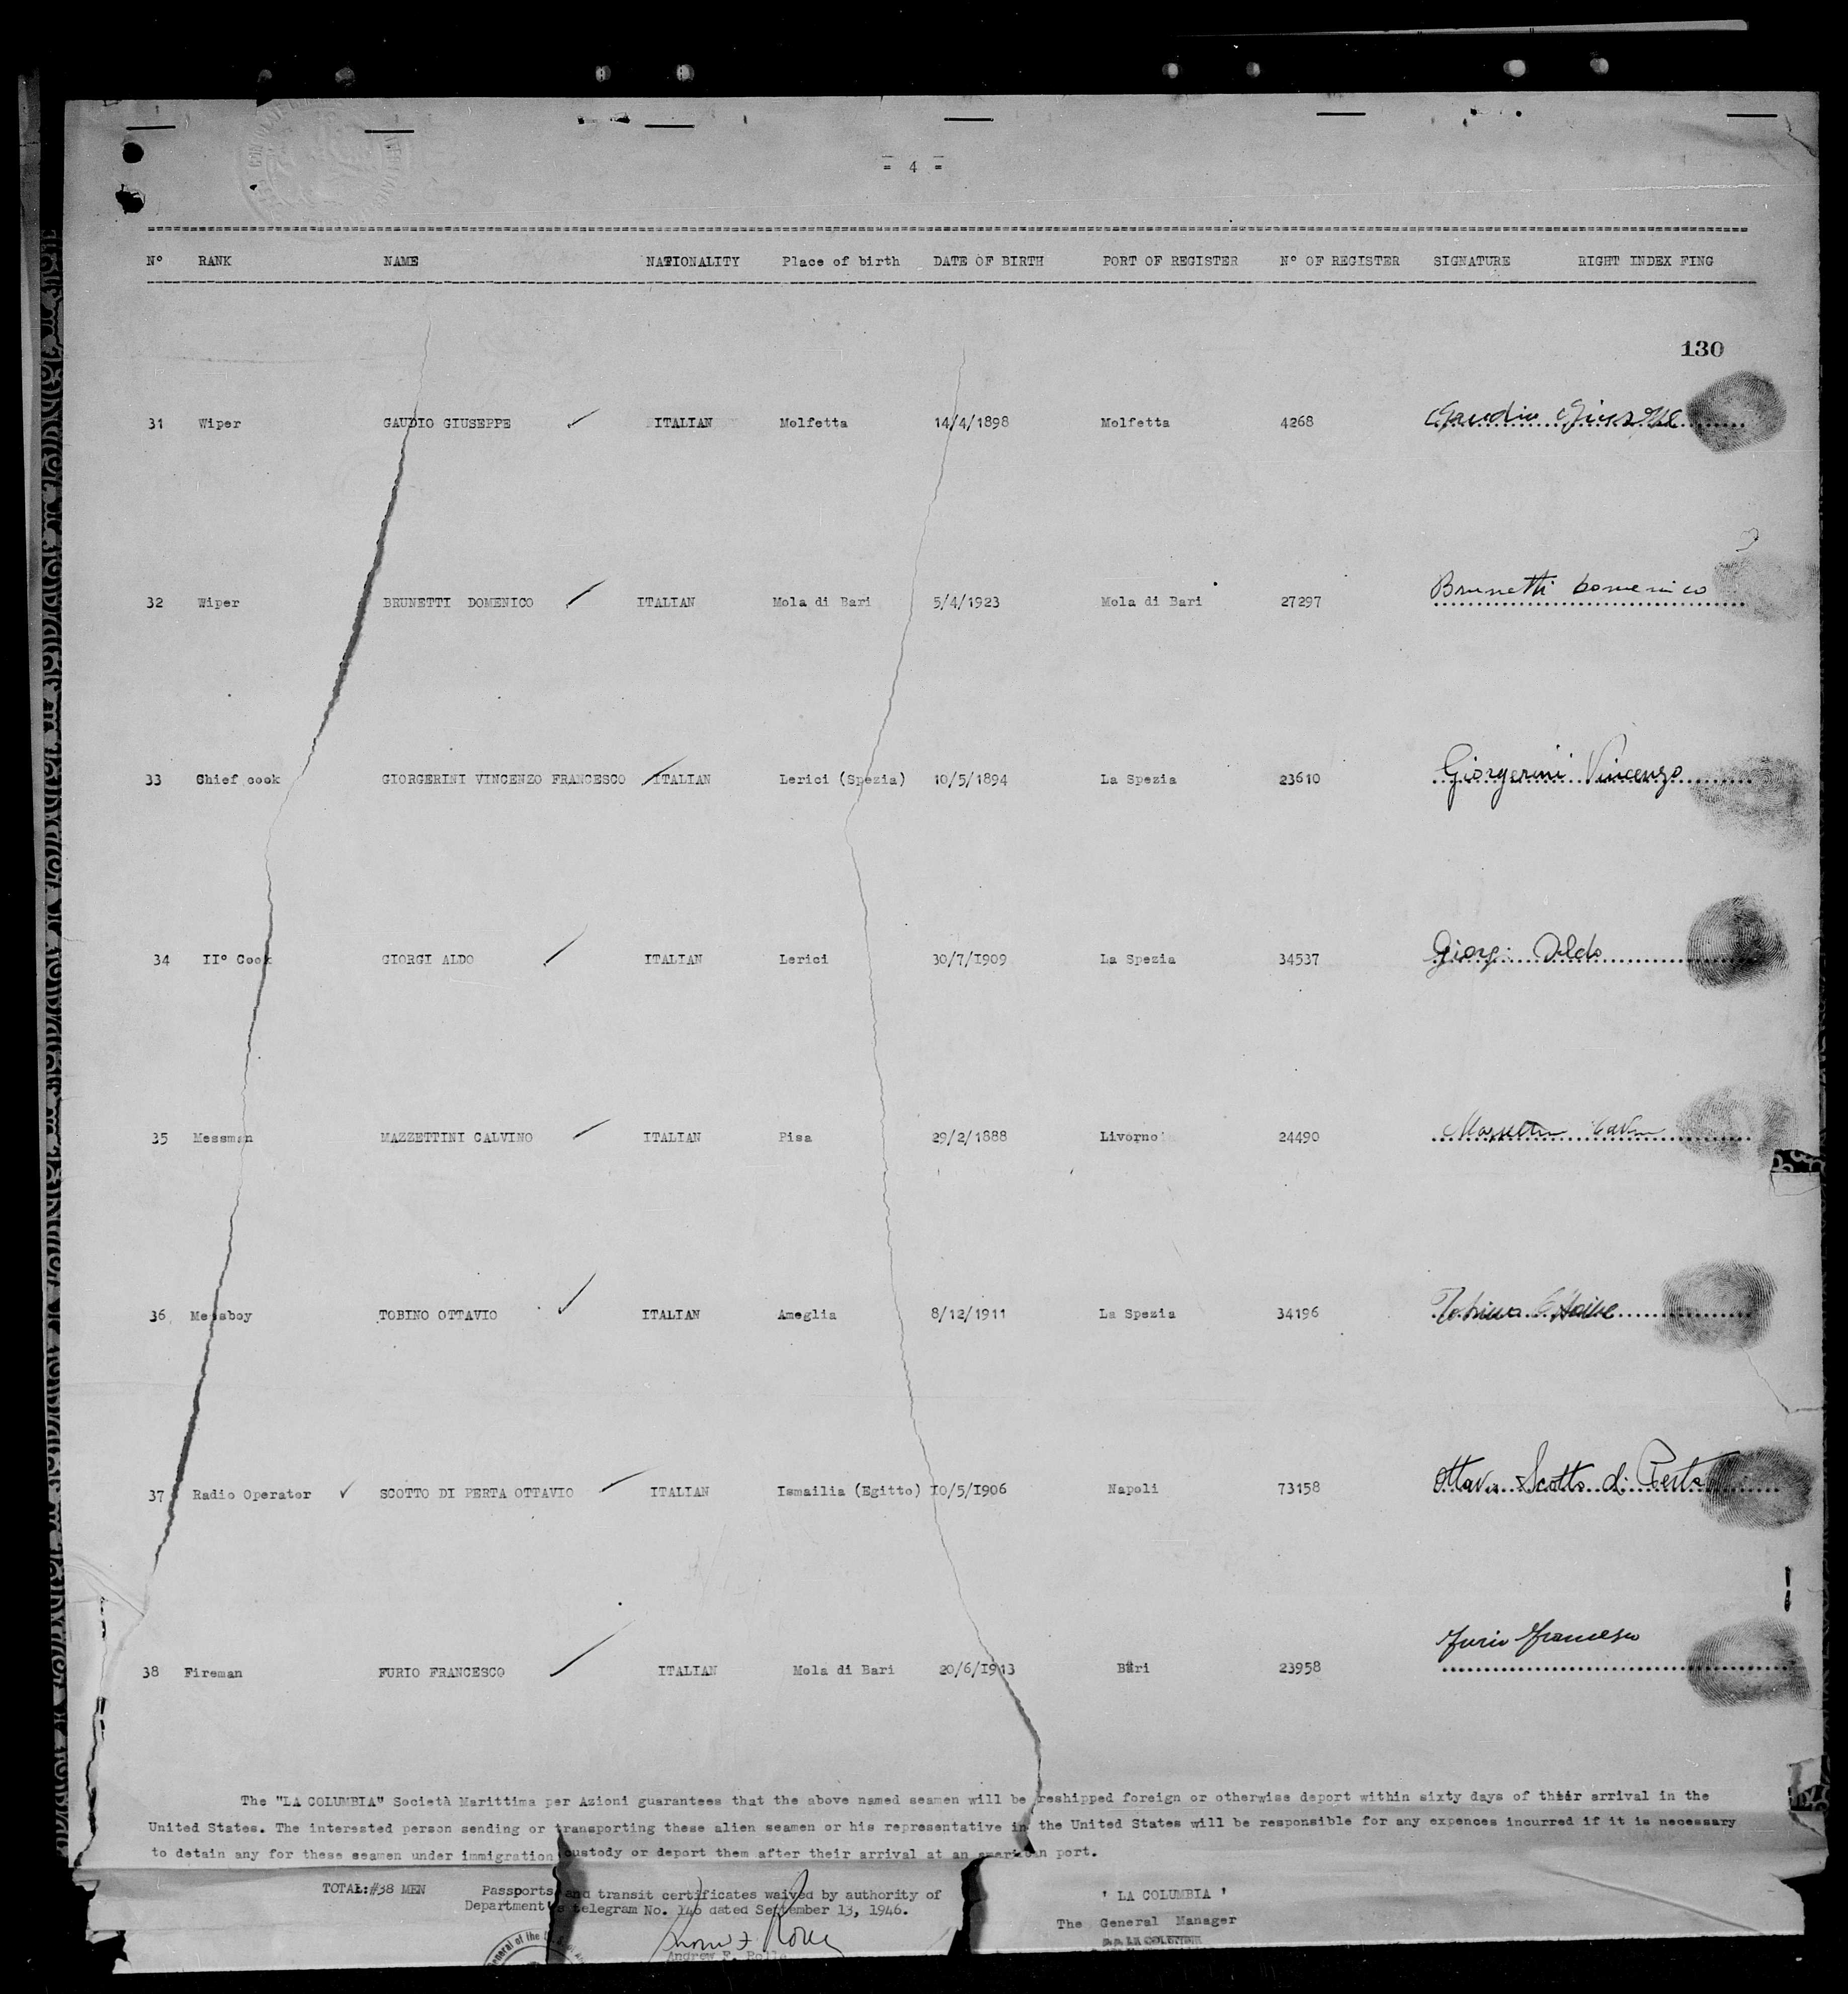 = 4 =
N° RANK NAME NATIONALITY Place of birth DATE OF BIRTH PORT OF REGISTER N° OF REGISTER SIGNATURE RIGHT INDEX FING
130
31 Wiper GAUDIO GIUSEPPE ITALIAN Molfetta 14/4/1898 Molfetta 4268 Gaudio Giuseppe
32 Wiper BRUNETTI DOMENICO ITALIAN Mola di Bari 5/4/1923 Mola di Bari 27297 Brunetti Domenico
33 Chief cook GIORGERINI VINCENZO FRANCESCO ITALIAN Lerici (Spezia) 10/5/1894 La Spezia 23610 Giorgerini Vincenzo
34 II° Cook GIORGI ALDO ITALIAN Lerici 30/7/1909 La Spezia 34537 Giorgi Aldo
35 Messman MAZZETTINI CALVINO ITALIAN Pisa 29/2/1888 Livorno 24490
36 Messboy TOBINO OTTAVIO ITALIAN Ameglia 8/12/1911 La Spezia 34196
37 Radio Operator SCOTTO DI PERTA OTTAVIO ITALIAN Ismailia (Egitto) 10/5/1906 Napoli 73158 Ottavio Scotto di Perta
38 Fireman FURIO FRANCESCO ITALIAN Mola di Bari 20/6/1913 Bari 23958 Furio Francesco
The "LA COLUMBIA" Società Marittima per Azioni guarantees that the above named seamen will be reshipped foreign or otherwise deport within sixty days of their arrival in the
United States. The interested person sending or transporting these alien seamen or his representative in the United States will be responsible for any expences incurred if it is necessary
to detain any for these seamen under immigration custody or deport them after their arrival at an american port.
TOTAL:#38 MEN Passports and transit certificates waived by authority of
Department's telegram No. 146 dated September 13, 1946.
' LA COLUMBIA '
The General Manager
p.p. LA COLUMBIA
Andrew F. Rolle